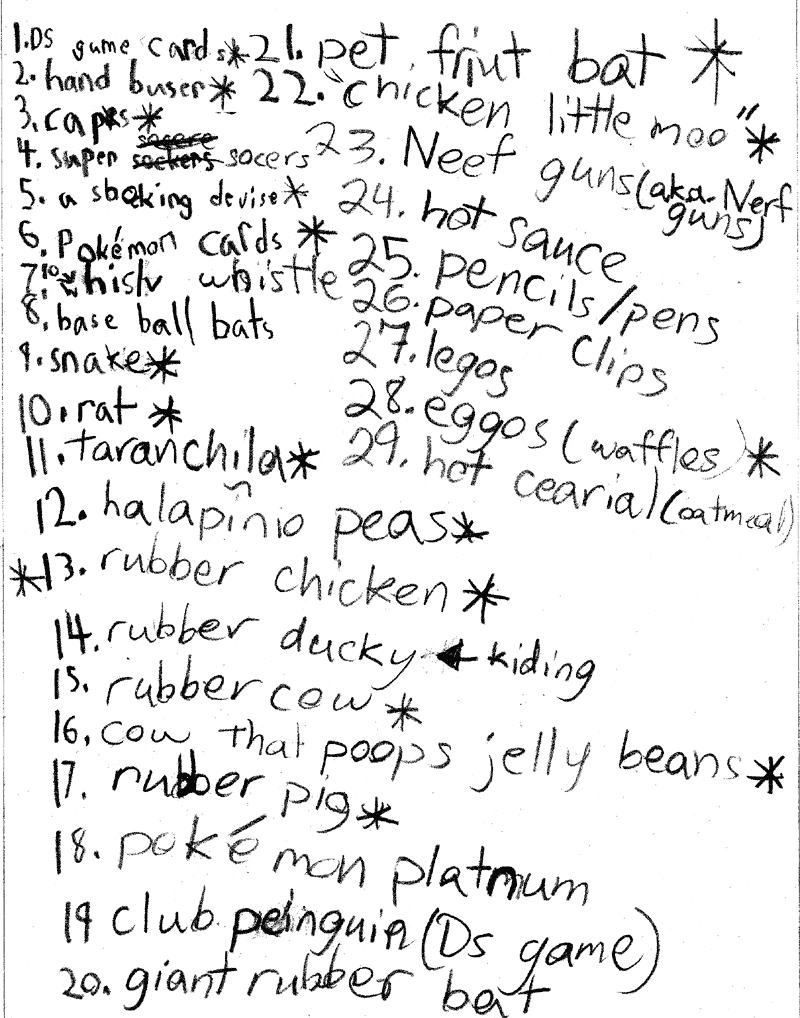 1. DS game cards*
2. hand buser*
3. caps*
4. super socers
5. a shocking devise*
6. Pokémon cards*
7. whistle
8. base ball bats
9. snake*
10. rat *
11. taranchila*
12. halapiñio peas*
*13. rubber chicken *
14. rubber ducky ← kiding
15. rubber cow *
16. cow that poops jelly beans*
17. rubber pig*
18. pokémon platnum
19 club penguin (Ds game)
20. giant rubber bat
21. pet friut bat *
22. "chicken little moo" *
23. Neef guns (aka. Nerf guns)
24. hot sauce
25. pencils/pens
26. paper clips
27. legos
28. eggos (waffles) *
29. hot cearial (oatmeal)